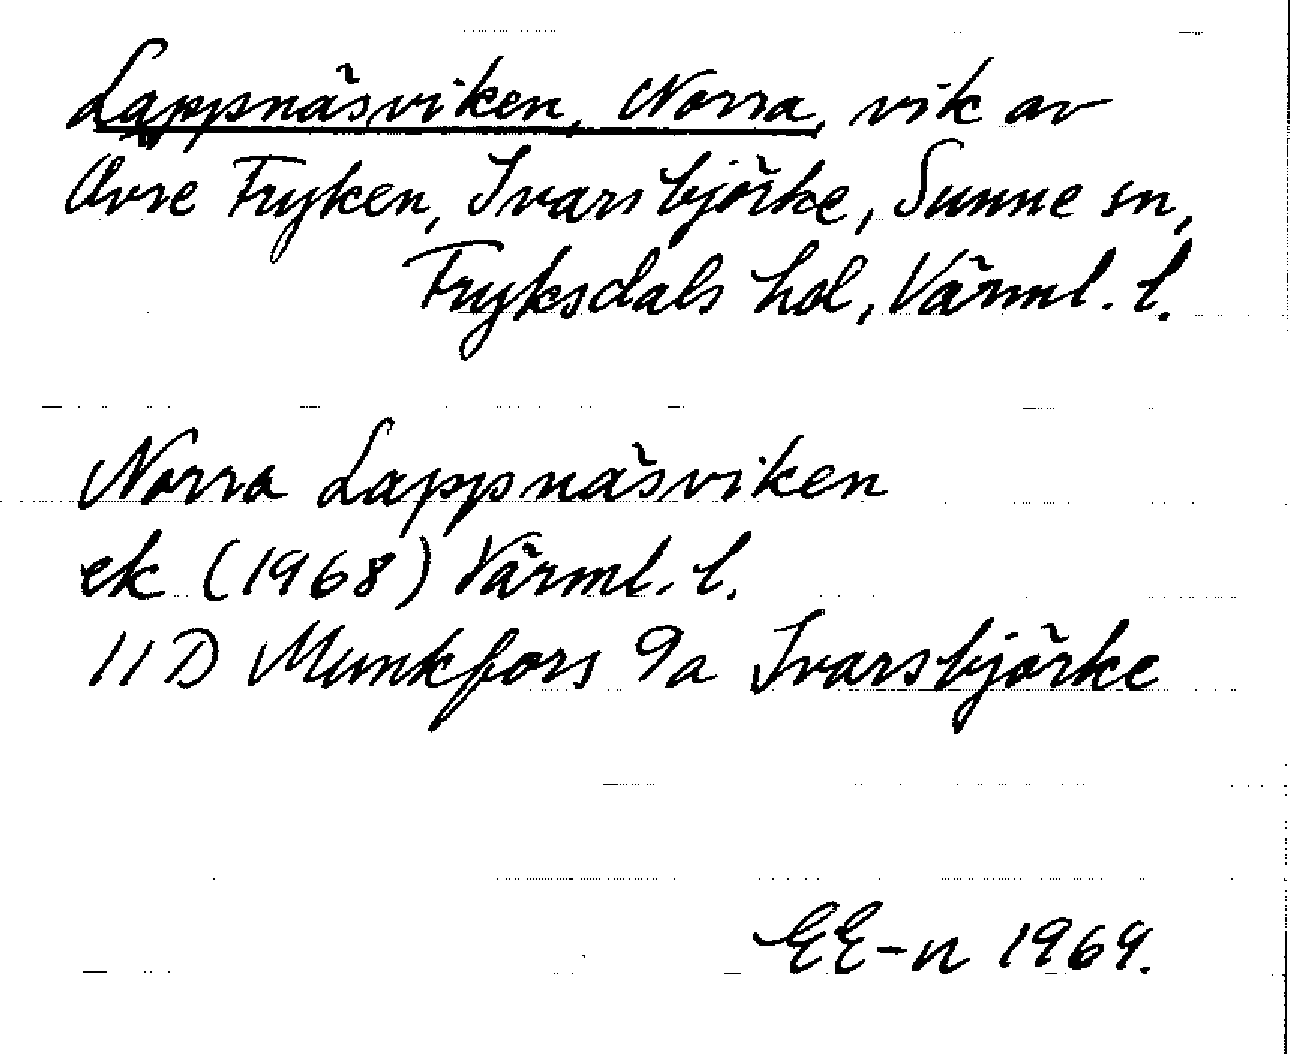 Lappnäsviken, Norra, vik av
Övre Fryken, Ivarsbjörke, Sunne sn,
Fryksdals hd, Värml. l.
Norra Lappnäsviken
ek (1968) Värml. l.
11 D Munkfors 9a Ivarsbjörke
EE-n 1969.